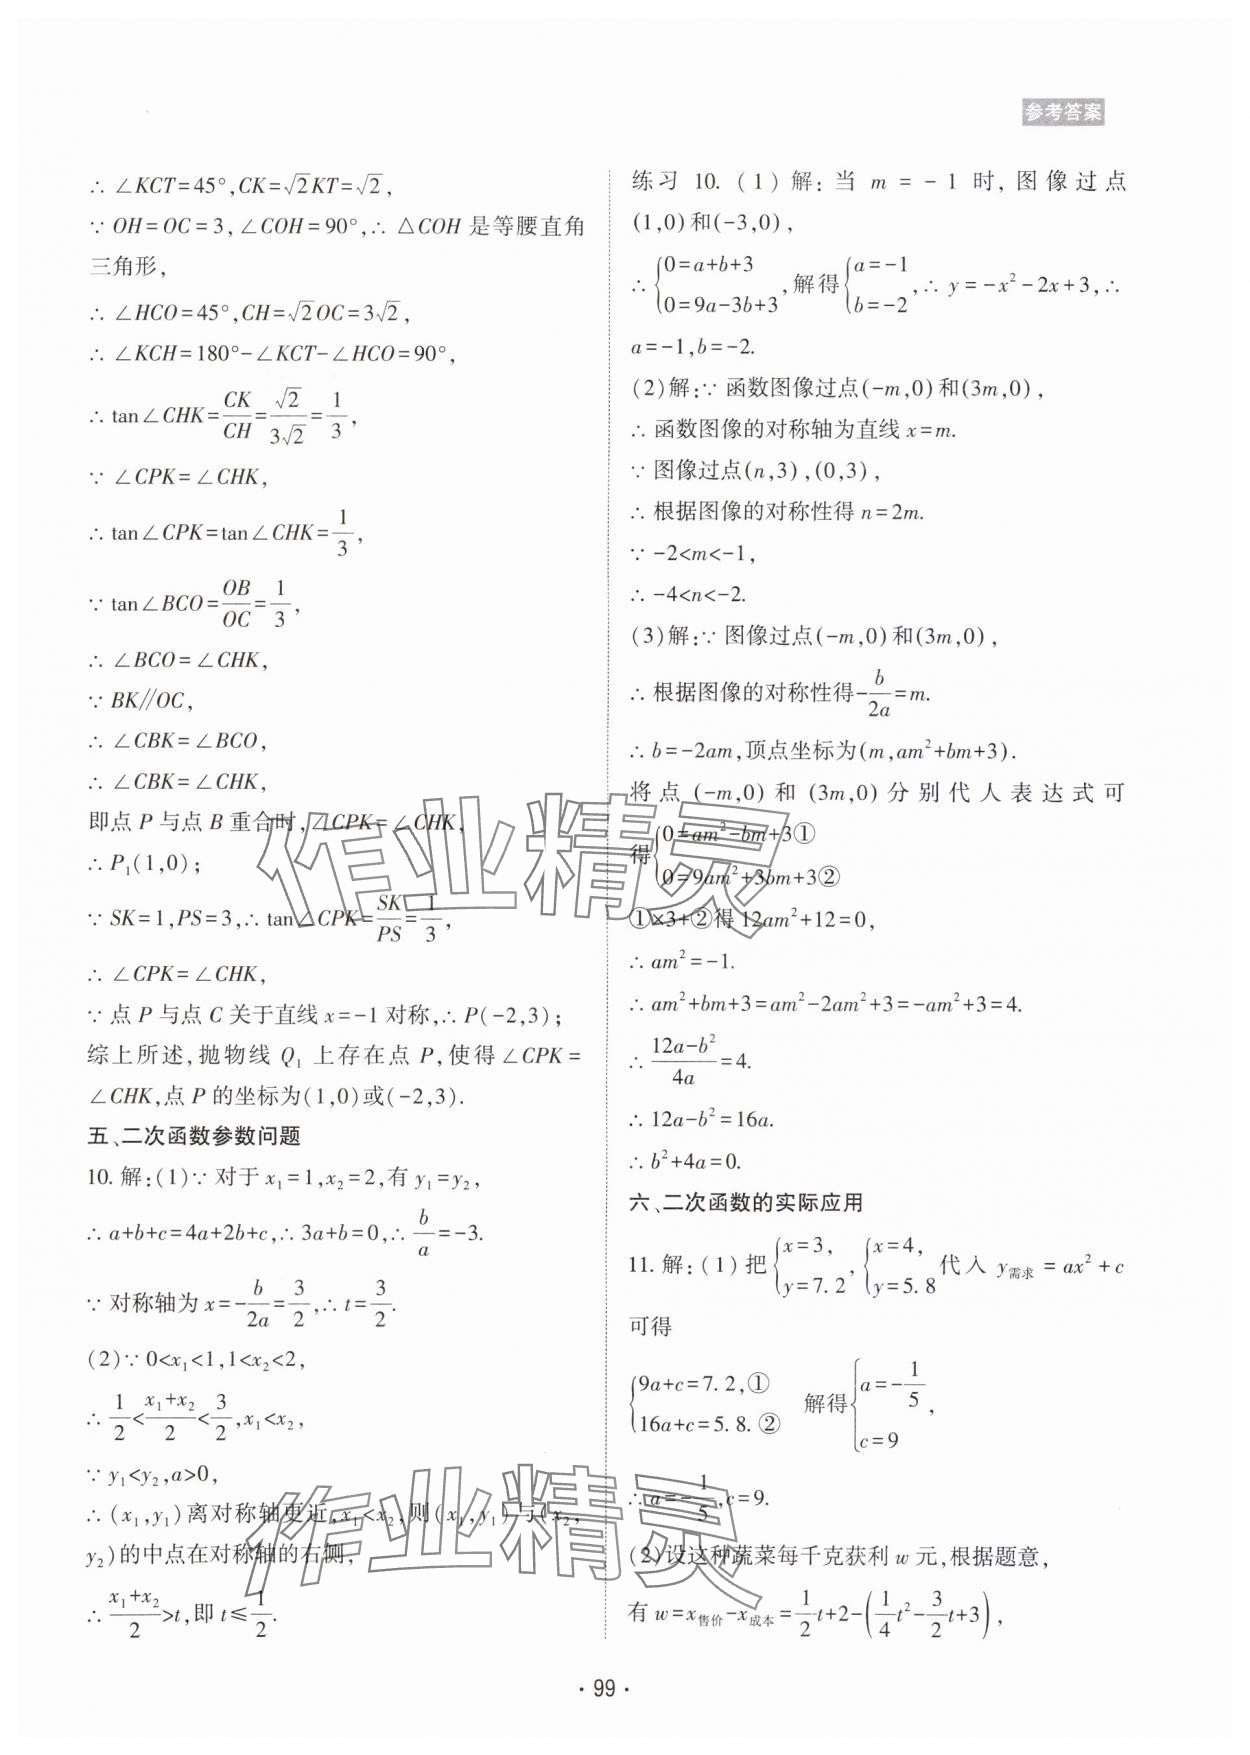 参考答案
∴ ∠KCT=45°,CK=√2KT=√2,
∵ OH=OC=3,∠COH=90°,∴ △COH 是等腰直角
三角形,
∴ ∠HCO=45°,CH=√2OC=3√2,
∴ ∠KCH=180°-∠KCT-∠HCO=90°,
∴ tan∠CHK=CK/CH=√2/3√2=1/3,
∵ ∠CPK=∠CHK,
∴ tan∠CPK=tan∠CHK=1/3,
∵ tan∠BCO=OB/OC=1/3,
∴ ∠BCO=∠CHK,
∵ BK//OC,
∴ ∠CBK=∠BCO,
∴ ∠CBK=∠CHK,
即点 P 与点 B 重合时,∠CPK=∠CHK,
∴ P₁(1,0);
∵ SK=1,PS=3,∴ tan∠CPK=SK/PS=1/3,
∴ ∠CPK=∠CHK,
∵ 点 P 与点 C 关于直线 x=-1 对称,∴ P(-2,3);
综上所述,抛物线 Q₁ 上存在点 P,使得∠CPK=
∠CHK,点 P 的坐标为(1,0)或(-2,3).
五、二次函数参数问题
10. 解:(1)∵ 对于 x₁=1,x₂=2,有 y₁=y₂,
∴ a+b+c=4a+2b+c,∴ 3a+b=0,∴ b/a=-3.
∵ 对称轴为 x=-b/2a=3/2,∴ t=3/2.
(2)∵ 0<x₁<1,1<x₂<2,
∴ 1/2<(x₁+x₂)/2<3/2,x₁<x₂,
∵ y₁<y₂,a>0,
∴ (x₁,y₁)离对称轴更近,x₁<x₂,则(x₁,y₁)与(x₂,
y₂)的中点在对称轴的右侧,
∴ (x₁+x₂)/2>t,即 t≤1/2.
练习 10. (1)解:当 m=-1 时,图像过点
(1,0)和(-3,0),
∴ {0=a+b+3 0=9a-3b+3,解得{a=-1 b=-2,∴ y=-x²-2x+3,∴
a=-1,b=-2.
(2)解:∵ 函数图像过点(-m,0)和(3m,0),
∴ 函数图像的对称轴为直线 x=m.
∵ 图像过点(n,3),(0,3),
∴ 根据图像的对称性得 n=2m.
∵ -2<m<-1,
∴ -4<n<-2.
(3)解:∵ 图像过点(-m,0)和(3m,0),
∴ 根据图像的对称性得-b/2a=m.
∴ b=-2am,顶点坐标为(m,am²+bm+3).
将点 (-m,0) 和 (3m,0) 分别代人表达式可
得{0=am²-bm+3① 0=9am²+3bm+3②
①×3+②得 12am²+12=0,
∴ am²=-1.
∴ am²+bm+3=am²-2am²+3=-am²+3=4.
∴ (12a-b²)/4a=4.
∴ 12a-b²=16a.
∴ b²+4a=0.
六、二次函数的实际应用
11. 解:(1)把{x=3, y=7.2,{x=4, y=5.8代入 y需求=ax²+c
可得
{9a+c=7.2,① 16a+c=5.8.② 解得{a=-1/5 c=9,
∴ a=-1/5,c=9.
(2)设这种蔬菜每千克获利 w 元,根据题意,
有 w=x售价-x成本=1/2t+2-(1/4t²-3/2t+3),
·99·
作业精灵
作业精灵